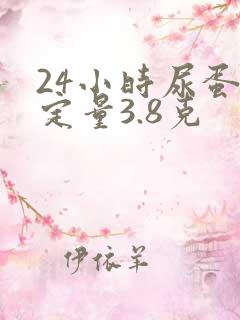 24小时尿蛋
定量3.8克
伊依羊